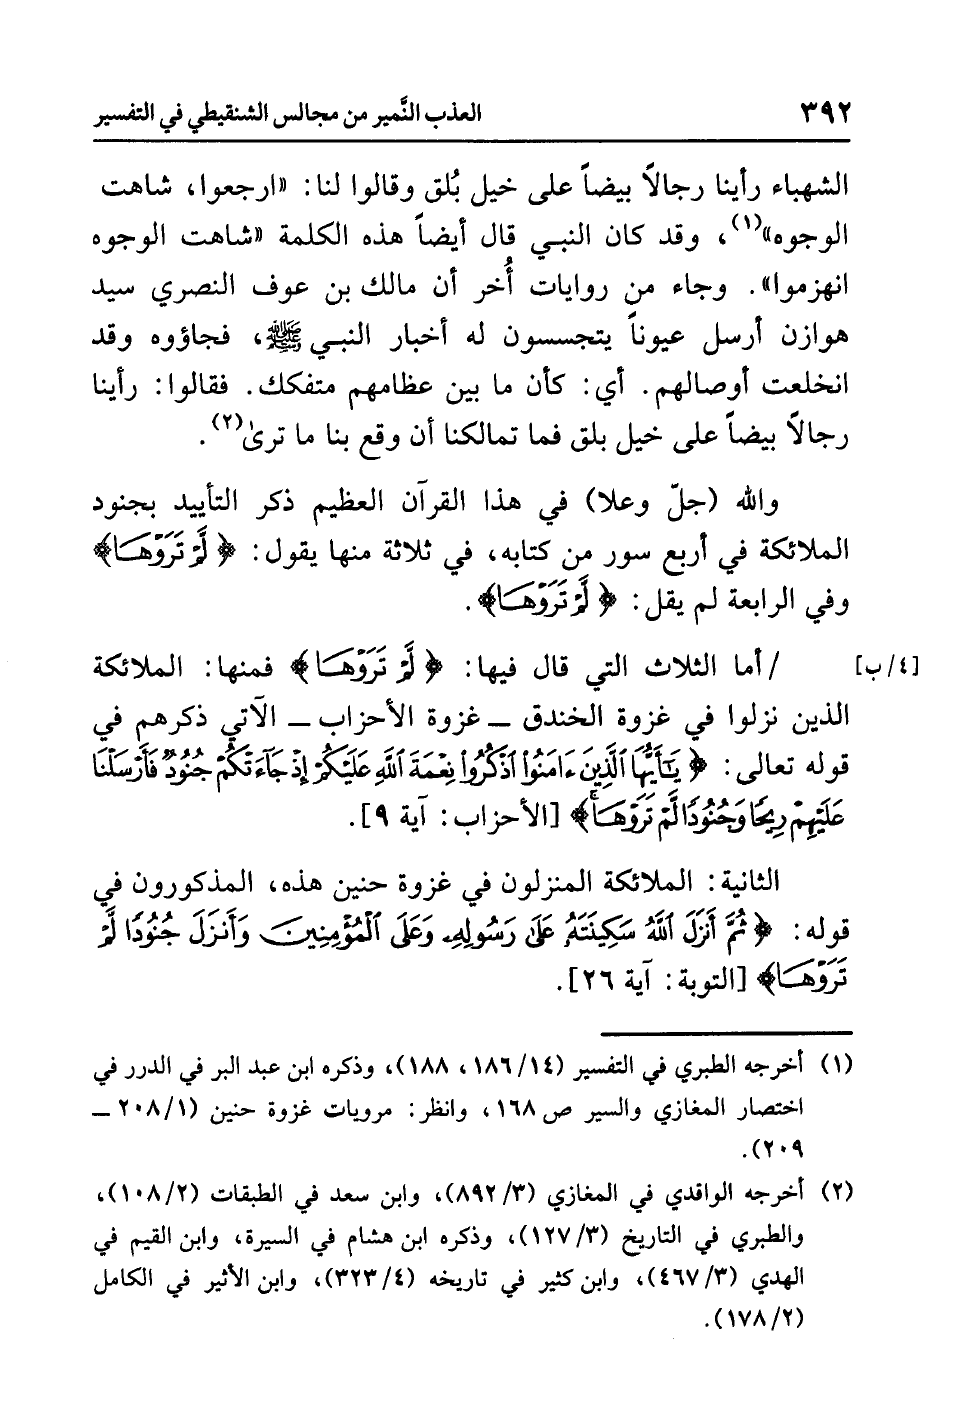 ٣٩٢ العذب النَّمير من مجالس الشنقيطي في التفسير
الشهباء رأينا رجالاً بيضاً على خيل بُلق وقالوا لنا: «ارجعوا، شاهت
الوجوه»(١)، وقد كان النبي قال أيضاً هذه الكلمة «شاهت الوجوه
انهزموا». وجاء من روايات أُخر أن مالك بن عوف النصري سيد
هوازن أرسل عيوناً يتجسسون له أخبار النبي ﷺ، فجاؤوه وقد
انخلعت أوصالهم. أي: كأن ما بين عظامهم متفكك. فقالوا: رأينا
رجالاً بيضاً على خيل بلق فما تمالكنا أن وقع بنا ما ترىٰ(٢).
والله (جلّ وعلا) في هذا القرآن العظيم ذكر التأييد بجنود
الملائكة في أربع سور من كتابه، في ثلاثة منها يقول: ﴿لَّمْ تَرَوْهَا﴾
وفي الرابعة لم يقل: ﴿لَّمْ تَرَوْهَا﴾.
[٤/ب] / أما الثلاث التي قال فيها: ﴿لَّمْ تَرَوْهَا﴾ فمنها: الملائكة
الذين نزلوا في غزوة الخندق ــ غزوة الأحزاب ــ الآتي ذكرهم في
قوله تعالى: ﴿يَٰٓأَيُّهَا ٱلَّذِينَ ءَامَنُوا۟ ٱذْكُرُوا۟ نِعْمَةَ ٱللَّهِ عَلَيْكُمْ إِذْ جَآءَتْكُمْ جُنُودٌ فَأَرْسَلْنَا
عَلَيْهِمْ رِيحًا وَجُنُودًا لَّمْ تَرَوْهَا ۚ﴾ [الأحزاب: آية ٩].
الثانية: الملائكة المنزلون في غزوة حنين هذه، المذكورون في
قوله: ﴿ثُمَّ أَنزَلَ ٱللَّهُ سَكِينَتَهُۥ عَلَىٰ رَسُولِهِۦ وَعَلَى ٱلْمُؤْمِنِينَ وَأَنزَلَ جُنُودًا لَّمْ
تَرَوْهَا﴾ [التوبة: آية ٢٦].
(١) أخرجه الطبري في التفسير (١٤/١٨٦، ١٨٨)، وذكره ابن عبد البر في الدرر في
اختصار المغازي والسير ص ١٦٨، وانظر: مرويات غزوة حنين (١/٢٠٨ ــ
٢٠٩).
(٢) أخرجه الواقدي في المغازي (٣/٨٩٢)، وابن سعد في الطبقات (٢/١٠٨)،
والطبري في التاريخ (٣/١٢٧)، وذكره ابن هشام في السيرة، وابن القيم في
الهدي (٣/٤٦٧)، وابن كثير في تاريخه (٤/٣٢٣)، وابن الأثير في الكامل
(٢/١٧٨).